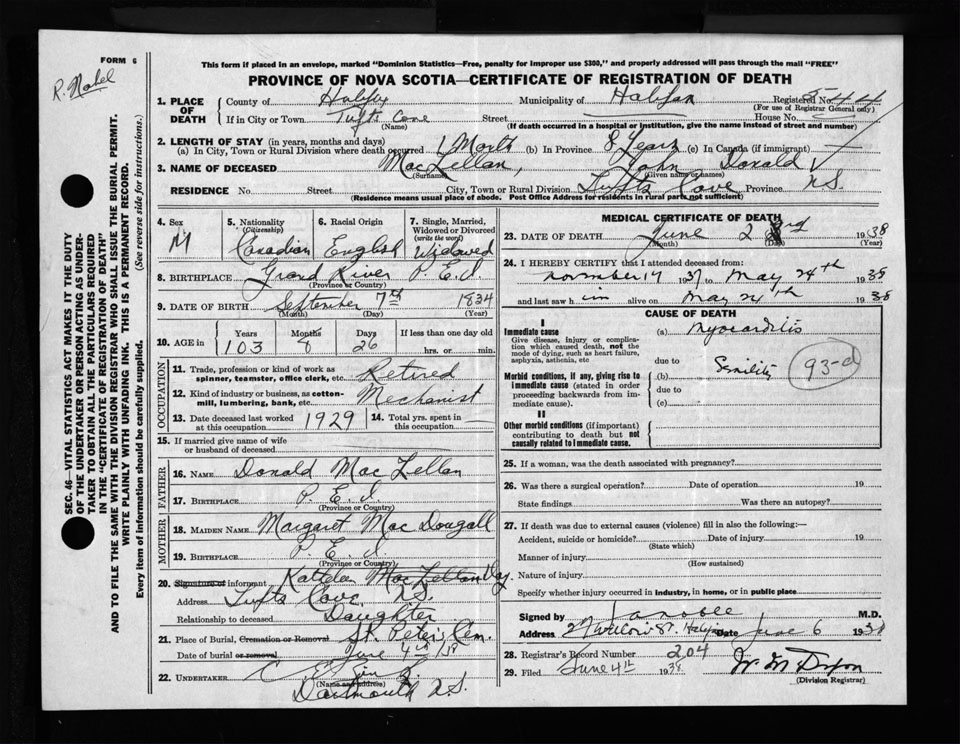 FORM 6
R. Nobel
This form if placed in an envelope, marked "Dominion Statistics—Free, penalty for improper use $300," and properly addressed will pass through the mail "FREE"
PROVINCE OF NOVA SCOTIA—CERTIFICATE OF REGISTRATION OF DEATH
SEC. 46—VITAL STATISTICS ACT MAKES IT THE DUTY
OF THE UNDERTAKER OR PERSON ACTING AS UNDER-
TAKER TO OBTAIN ALL THE PARTICULARS REQUIRED
IN THE "CERTIFICATE OF REGISTRATION OF DEATH"
AND TO FILE THE SAME WITH THE DIVISION REGISTRAR WHO SHALL ISSUE THE BURIAL PERMIT.
WRITE PLAINLY WITH UNFADING INK. THIS IS A PERMANENT RECORD.
Every item of information should be carefully supplied. (See reverse side for instructions.)
1. PLACE OF DEATH County of Halifax Municipality of Halifax Registered No. 544
(For use of Registrar General only)
If in City or Town Tufts Cove Street House No.
(Name) (If death occurred in a hospital or institution, give the name instead of street and number)
2. LENGTH OF STAY (in years, months and days)
(a) In City, Town or Rural Division where death occurred 1 Month (b) In Province 8 Years (c) In Canada (if immigrant) —
3. NAME OF DECEASED MacLellan, John Donald
(Surname) (Given name or names)
RESIDENCE No. Street City, Town or Rural Division Tufts Cove Province N.S.
(Residence means usual place of abode. Post Office Address for residents in rural parts not sufficient)
4. Sex M
5. Nationality (Citizenship) Canadian
6. Racial Origin English
7. Single, Married, Widowed or Divorced (write the word) Widowed
8. BIRTHPLACE Grand River P.E.I.
(Province or Country)
9. DATE OF BIRTH September 7th 1834
(Month) (Day) (Year)
10. AGE in Years 103 Months 8 Days 26 If less than one day old hrs. or min.
OCCUPATION
11. Trade, profession or kind of work as spinner, teamster, office clerk, etc. Retired
12. Kind of industry or business, as cotton-mill, lumbering, bank, etc. Mechanist
13. Date deceased last worked at this occupation 1929
14. Total yrs. spent in this occupation —
15. If married give name of wife or husband of deceased
FATHER
16. NAME Donald MacLellan
17. BIRTHPLACE P.E.I.
(Province or Country)
MOTHER
18. MAIDEN NAME Margaret MacDougall
19. BIRTHPLACE P.E.I.
(Province or Country)
20. Signature of informant Kathleen MacLellan
Address Tufts Cove, N.S.
Relationship to deceased Daughter
21. Place of Burial, Cremation or Removal St. Peter's Cem.
Date of burial or removal June 4th /38
22. UNDERTAKER
(Name and address)
Dartmouth N.S.
MEDICAL CERTIFICATE OF DEATH
23. DATE OF DEATH June 2 3rd 1938
(Month) (Day) (Year)
24. I HEREBY CERTIFY that I attended deceased from:
November 17 1937 to May 24th 1938
and last saw him alive on May 24th 1938
CAUSE OF DEATH
I
Immediate cause (a) Myocarditis
Give disease, injury or complication which caused death, not the mode of dying, such as heart failure, asphyxia, asthenia, etc
due to
Morbid conditions, if any, giving rise to immediate cause (stated in order proceeding backwards from immediate cause). (b) Senility 93-d
due to
(c)
II
Other morbid conditions (if important) contributing to death but not causally related to immediate cause.
25. If a woman, was the death associated with pregnancy?
26. Was there a surgical operation? Date of operation 19
State findings Was there an autopsy?
27. If death was due to external causes (violence) fill in also the following:—
Accident, suicide or homicide? Date of injury 19
(State which)
Manner of injury
(How sustained)
Nature of injury
Specify whether injury occurred in industry, in home, or in public place
Signed by M.D.
Address Date June 6 1938
28. Registrar's Record Number 204
29. Filed June 4th 1938 W. M. Dixon
(Division Registrar)